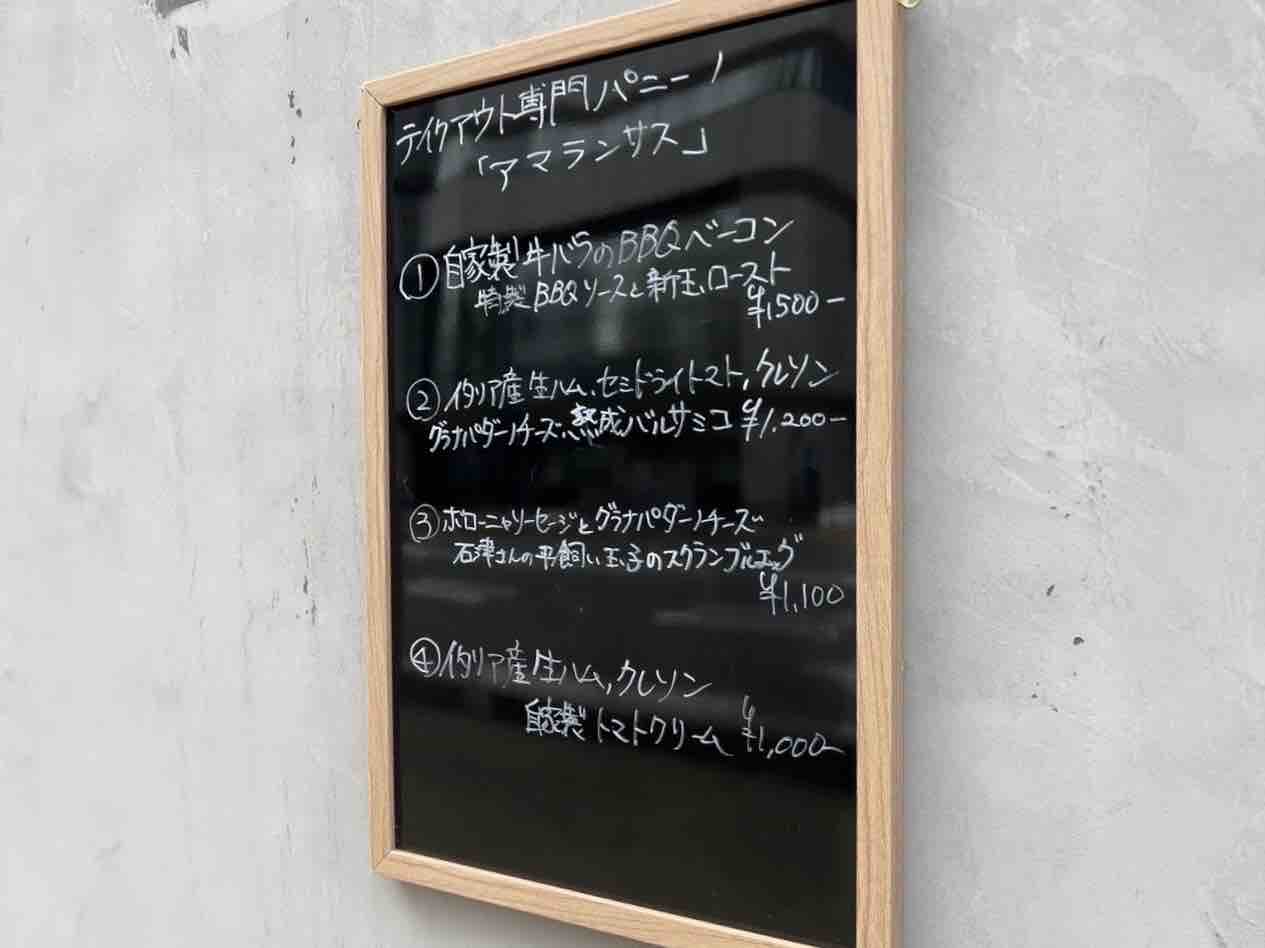 テイクアウト専門パニーノ
「アマランサス」
① 自家製牛バラのBBQベーコン
特製BBQソースと新玉、ロースト
¥1,500ー
② イタリア産生ハム、セミドライトマト、クレソン
グラナパダーノチーズ、熟成バルサミコ ¥1,200ー
③ ボローニャソーセージとグラナパダーノチーズ
石津さんの平飼い玉子のスクランブルエッグ
¥1,100
④ イタリア産生ハム、クレソン
自家製トマトクリーム ¥1,000ー